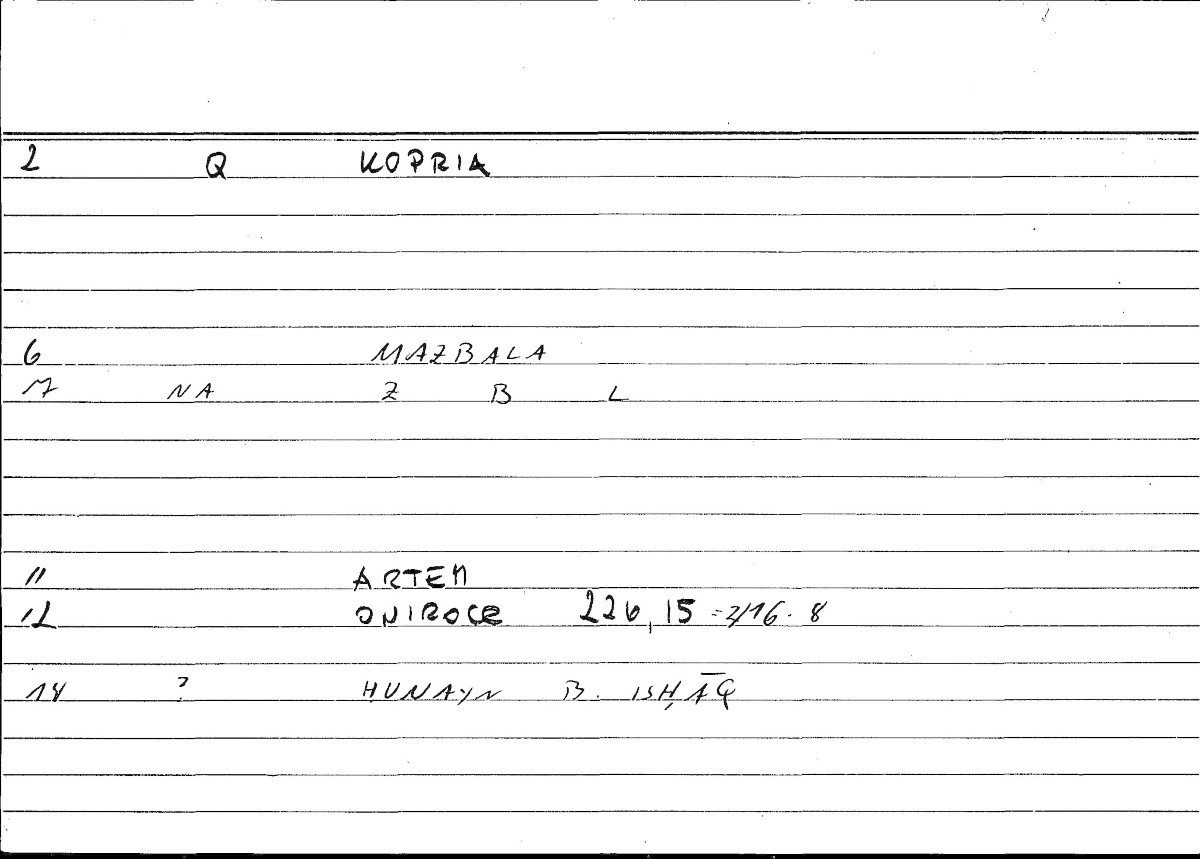 2 Q KOPRIA
6 MAZBALA
7 NA Z B L
11 ARTEM
12 ONIROCR 226,15 = 2/16. 8
14 ? ḤUNAYN B. ISḤĀQ